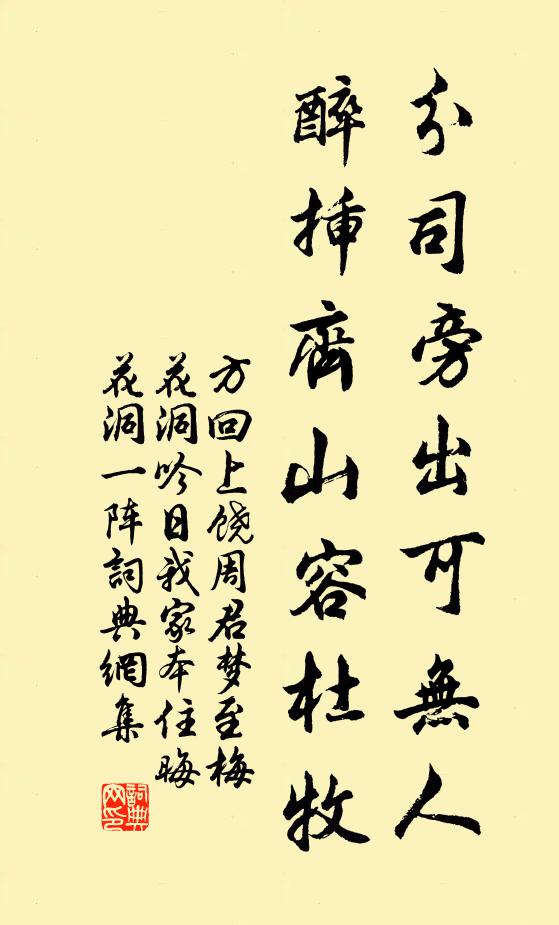 分司旁出可無人
醉揷齊山容杜牧
方回上饶周君梦至梅
花洞吟日我家本住晦
花洞一阵詞典網集
詞典
网印